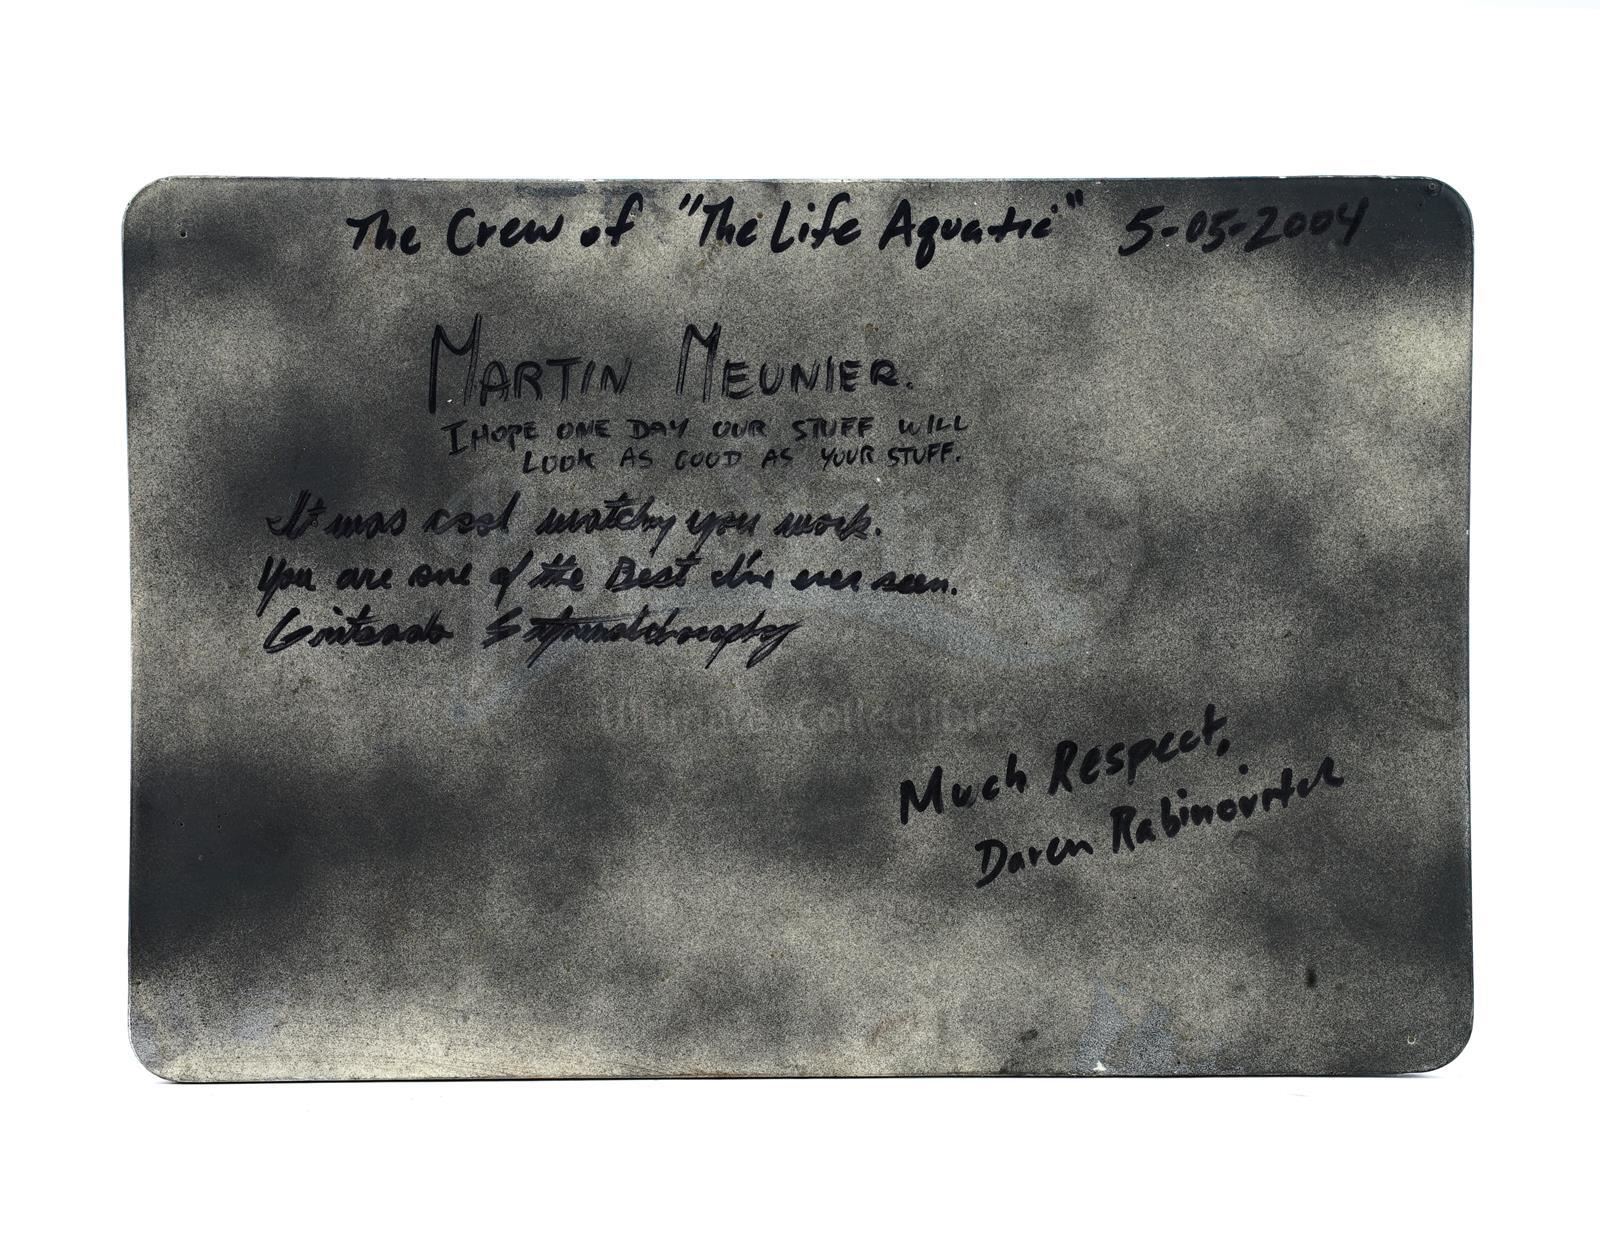 The Crew of "The Life Aquatic" 5-05-2004
MARTIN MEUNIER.
I HOPE ONE DAY OUR STUFF WILL
LOOK AS GOOD AS YOUR STUFF.
It was cool watching you work.
You are one of the Best I've ever seen.
Ultimate Collectibles
Much Respect,
Daren Rabinovitch